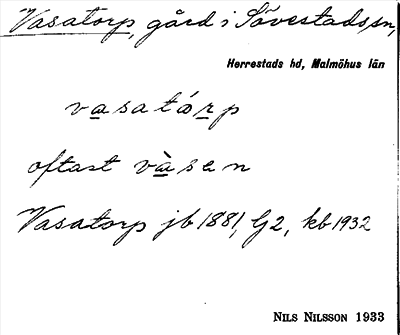 Vasatorp, gård i Sövestads sn,
Herrestads hd, Malmöhus län
vasatárp
oftast vàsen
Vasatorp jb 1881, G2, kb 1932
NILS NILSSON 1933